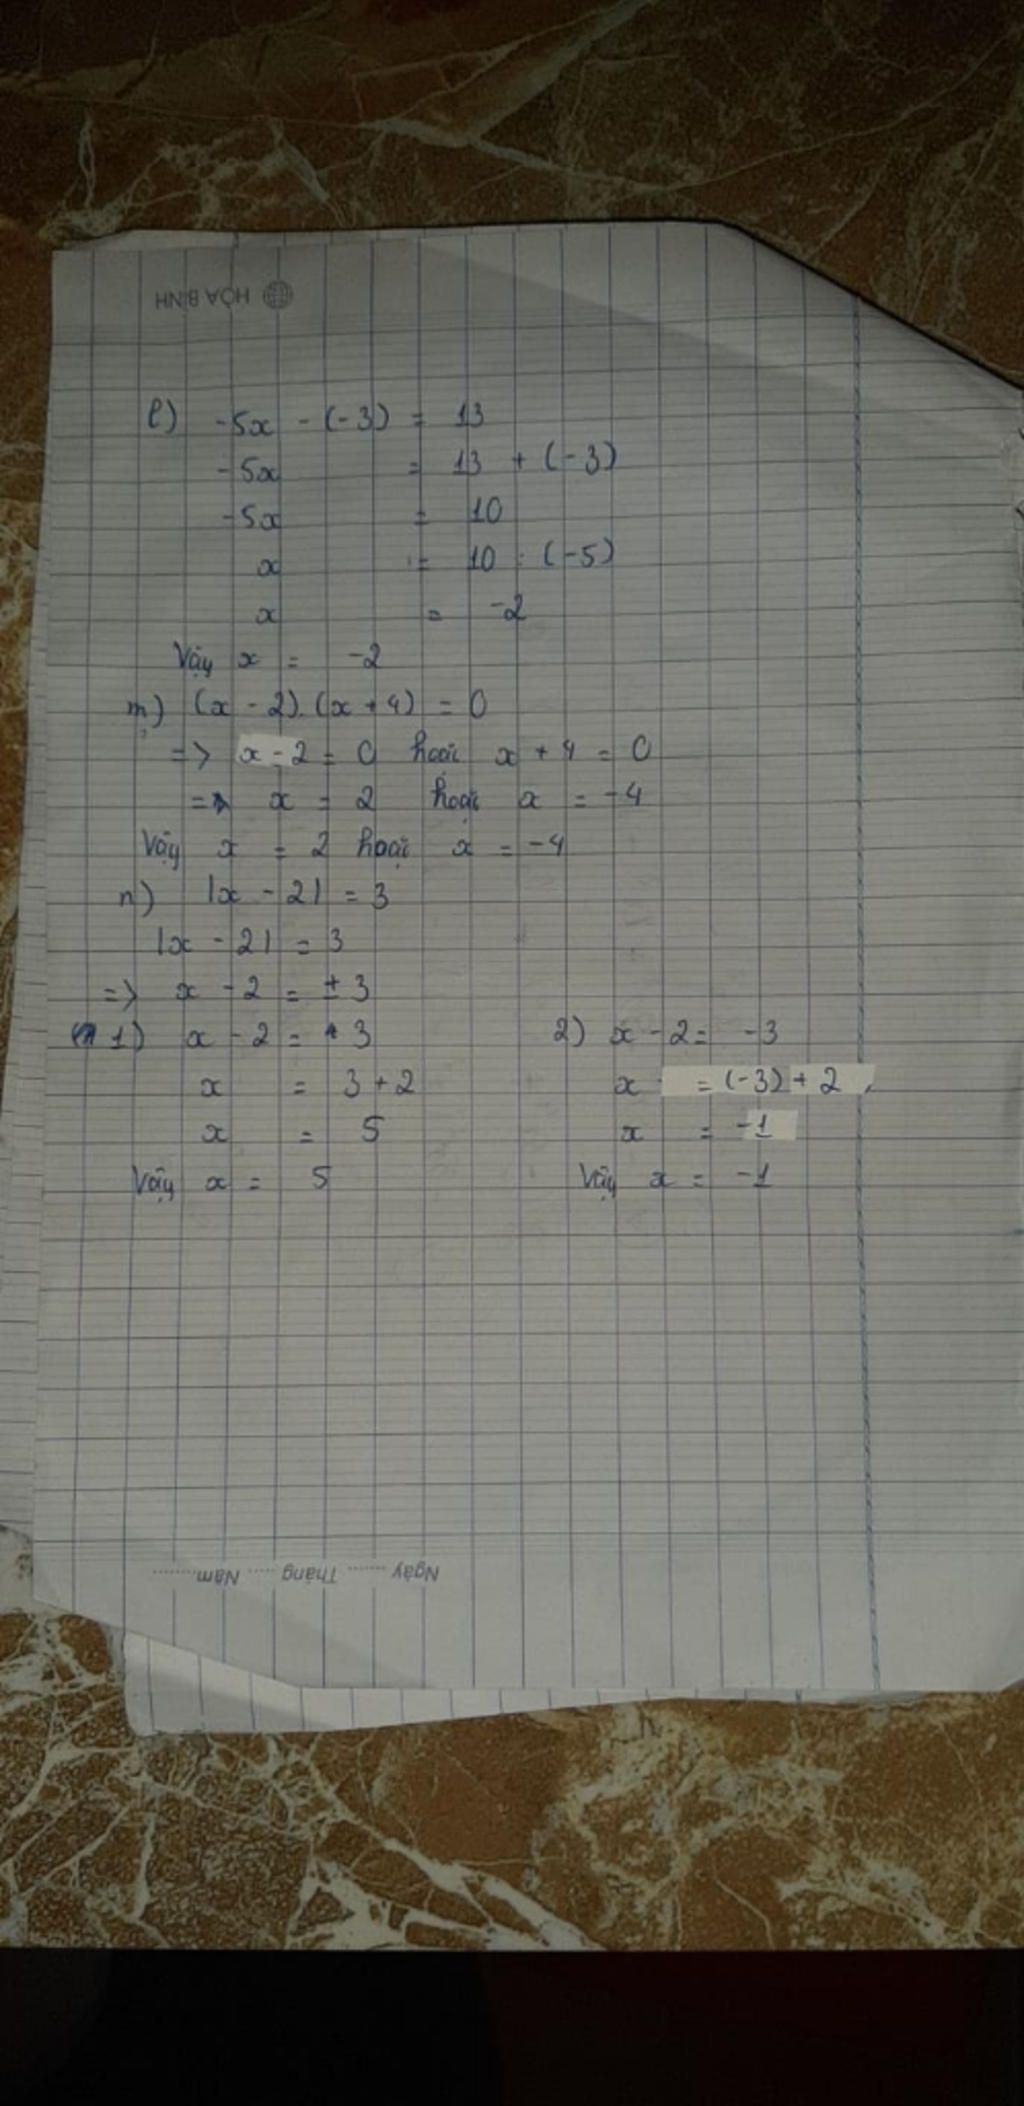 HÒA BÌNH
l) -5x - (-3) = 13
-5x = 13 + (-3)
-5x = 10
x = 10 : (-5)
x = -2
Vậy x = -2
m) (x - 2).(x + 4) = 0
=> x - 2 = 0 hoặc x + 4 = 0
=> x = 2 hoặc x = -4
Vậy x = 2 hoặc x = -4
n) |x - 2| = 3
|x - 2| = 3
=> x - 2 = ± 3
1) x - 2 = 3 2) x - 2 = -3
x = 3 + 2 x = (-3) + 2
x = 5 x = -1
Vậy x = 5 Vậy x = -1
Ngày ....... Tháng ..... Năm .........